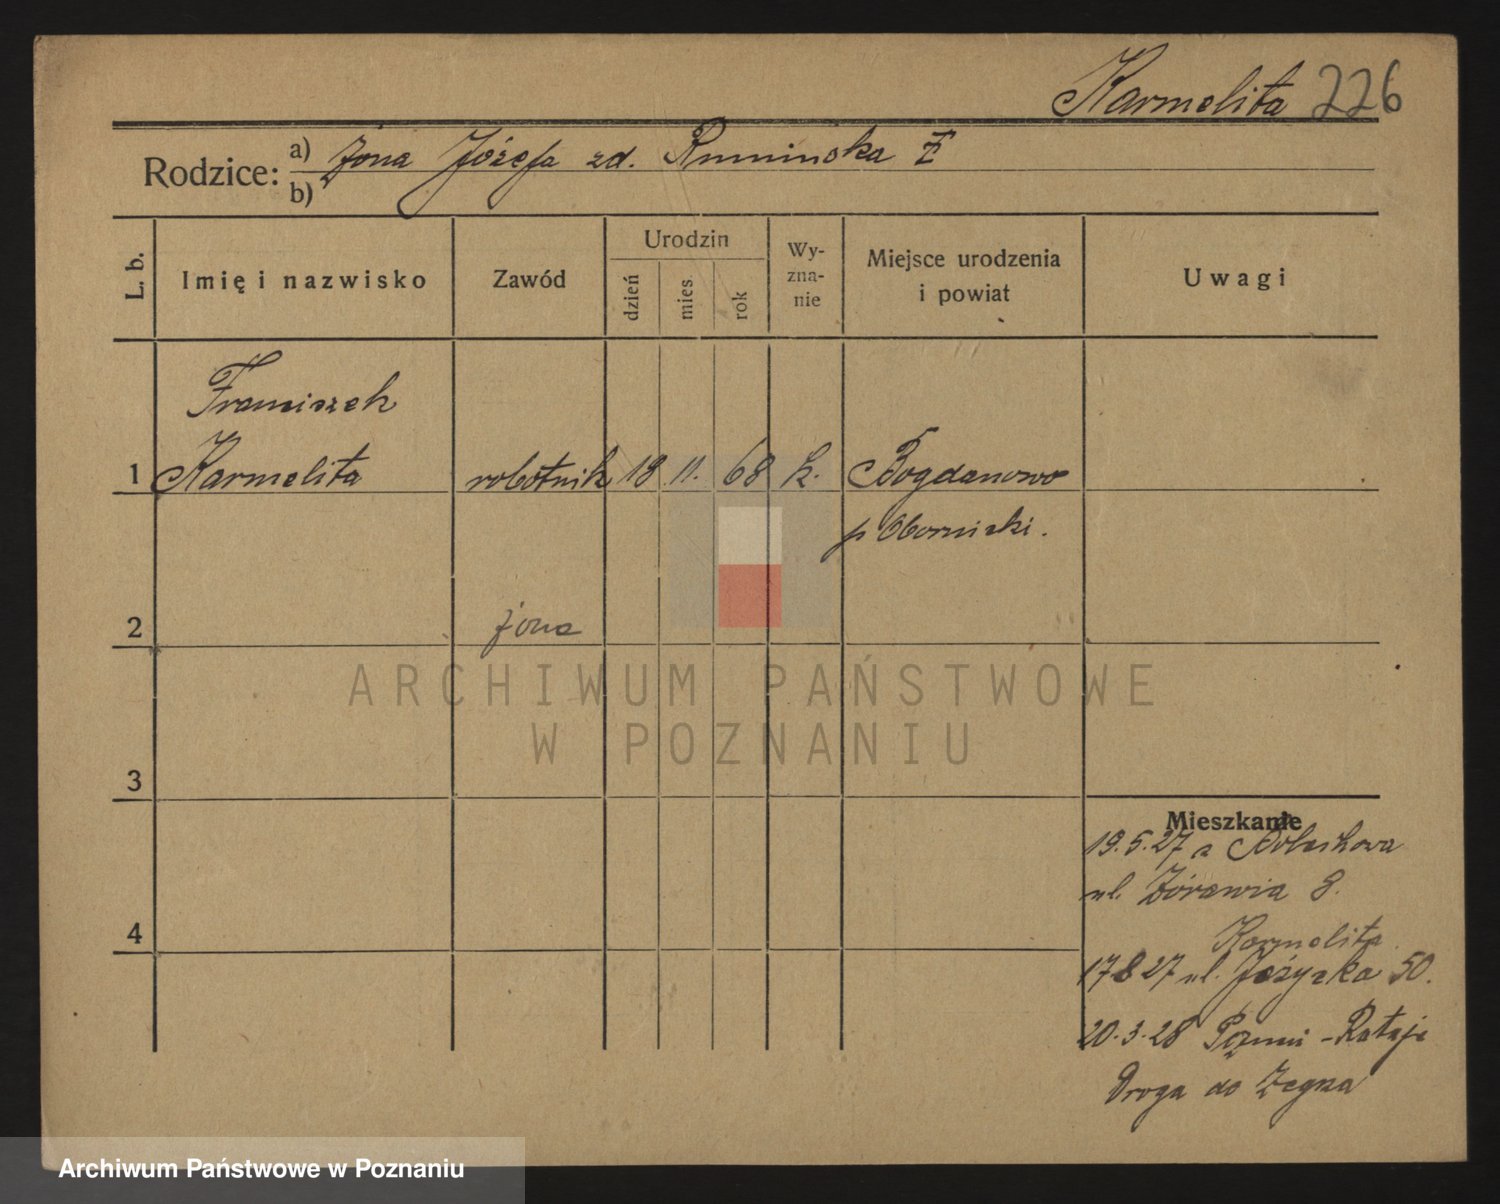 Karmelita 226
Rodzice: a) Żona Józefa zd. Rumińska
b)
L. b.
Imię i nazwisko
Zawód
Urodzin
dzień
mies
rok
Wy-
zna-
nie
Miejsce urodzenia
i powiat
Uwagi
Franciszek
1 Karmelita robotnik 18 11. 68 k. Bogdanowo
p Obornicki.
2 żona
3
4
Mieszkanie
19.5.27 z
ul. Żórawia 8.
Karmelita
17 8 27 ul. Jeżycka 50.
20.3.28 Poznań - Rataje
Droga do Żegrza
ARCHIWUM PAŃSTWOWE
W POZNANIU
Archiwum Państwowe w Poznaniu